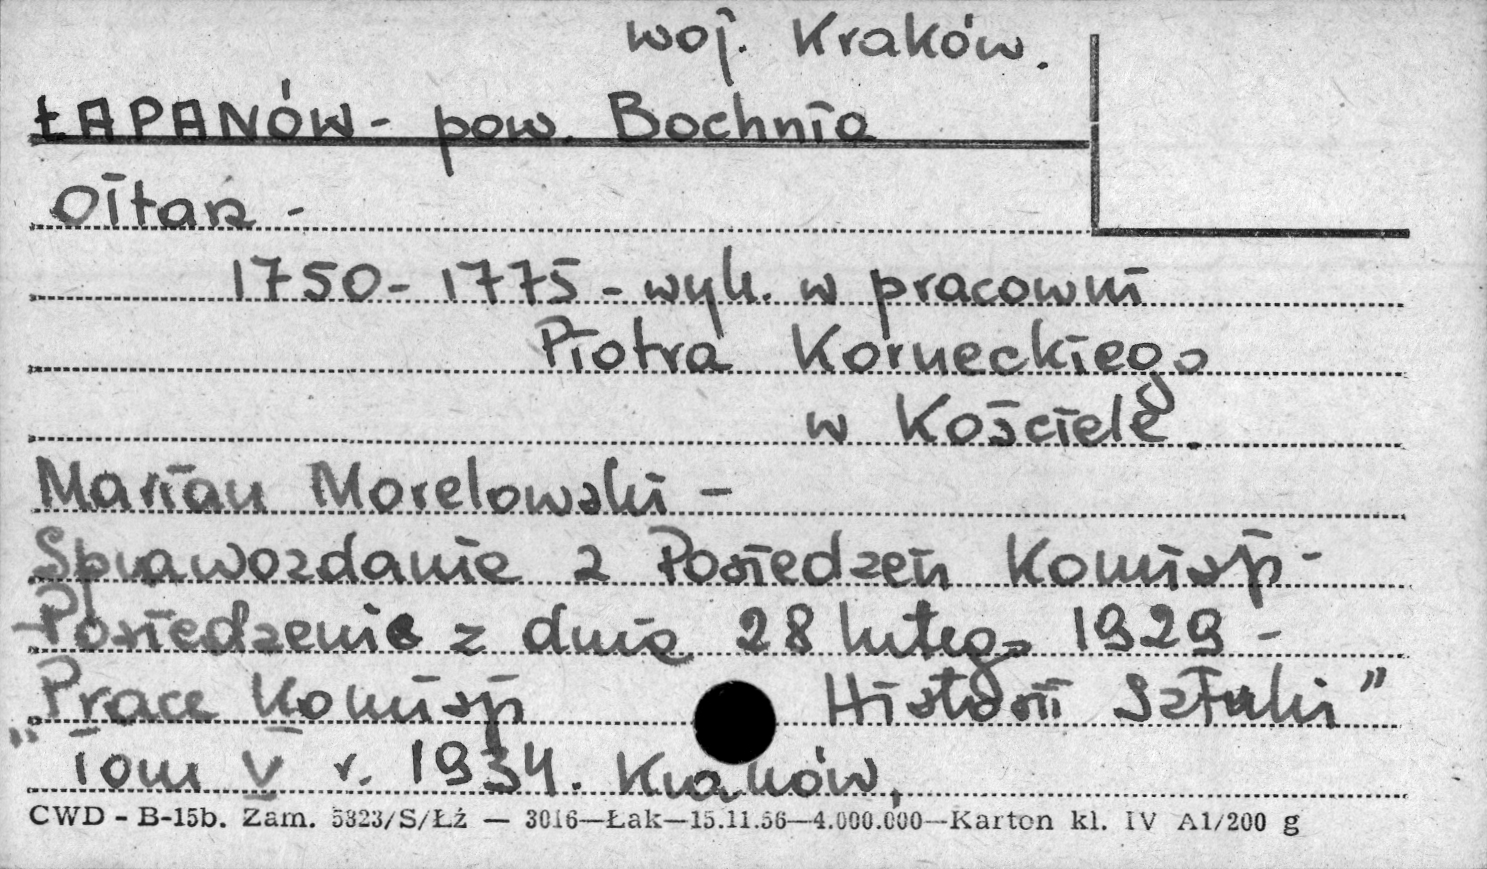 woj. Kraków.
ŁAPANÓW - pow. Bochnia
Ołtarz -
1750 - 1775 - wyk. w pracowni
Piotra Korneckiego
w Kościele.
Marian Morelowski -
Sprawozdanie z Posiedzeń Komisji -
- Posiedzenie z dnia 28 lutego 1929 -
„Prace Komisji Historii Sztuki”
Tom V r. 1934. Kraków,
CWD - B-15b. Zam. 5323/S/Łź — 3016—Łak—15.11.56—4.000.000—Karton kl. IV A1/200 g